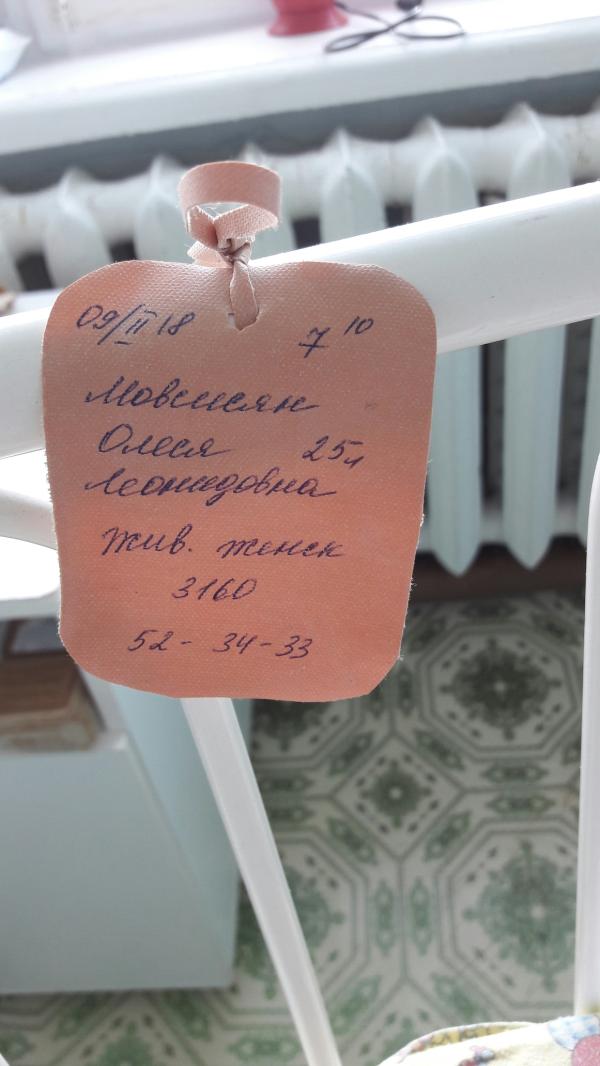 09/II 18 7 10
Мовсисян
Олеся 25 л
Леонидовна
Жив. женск
3160
52 - 34 - 33